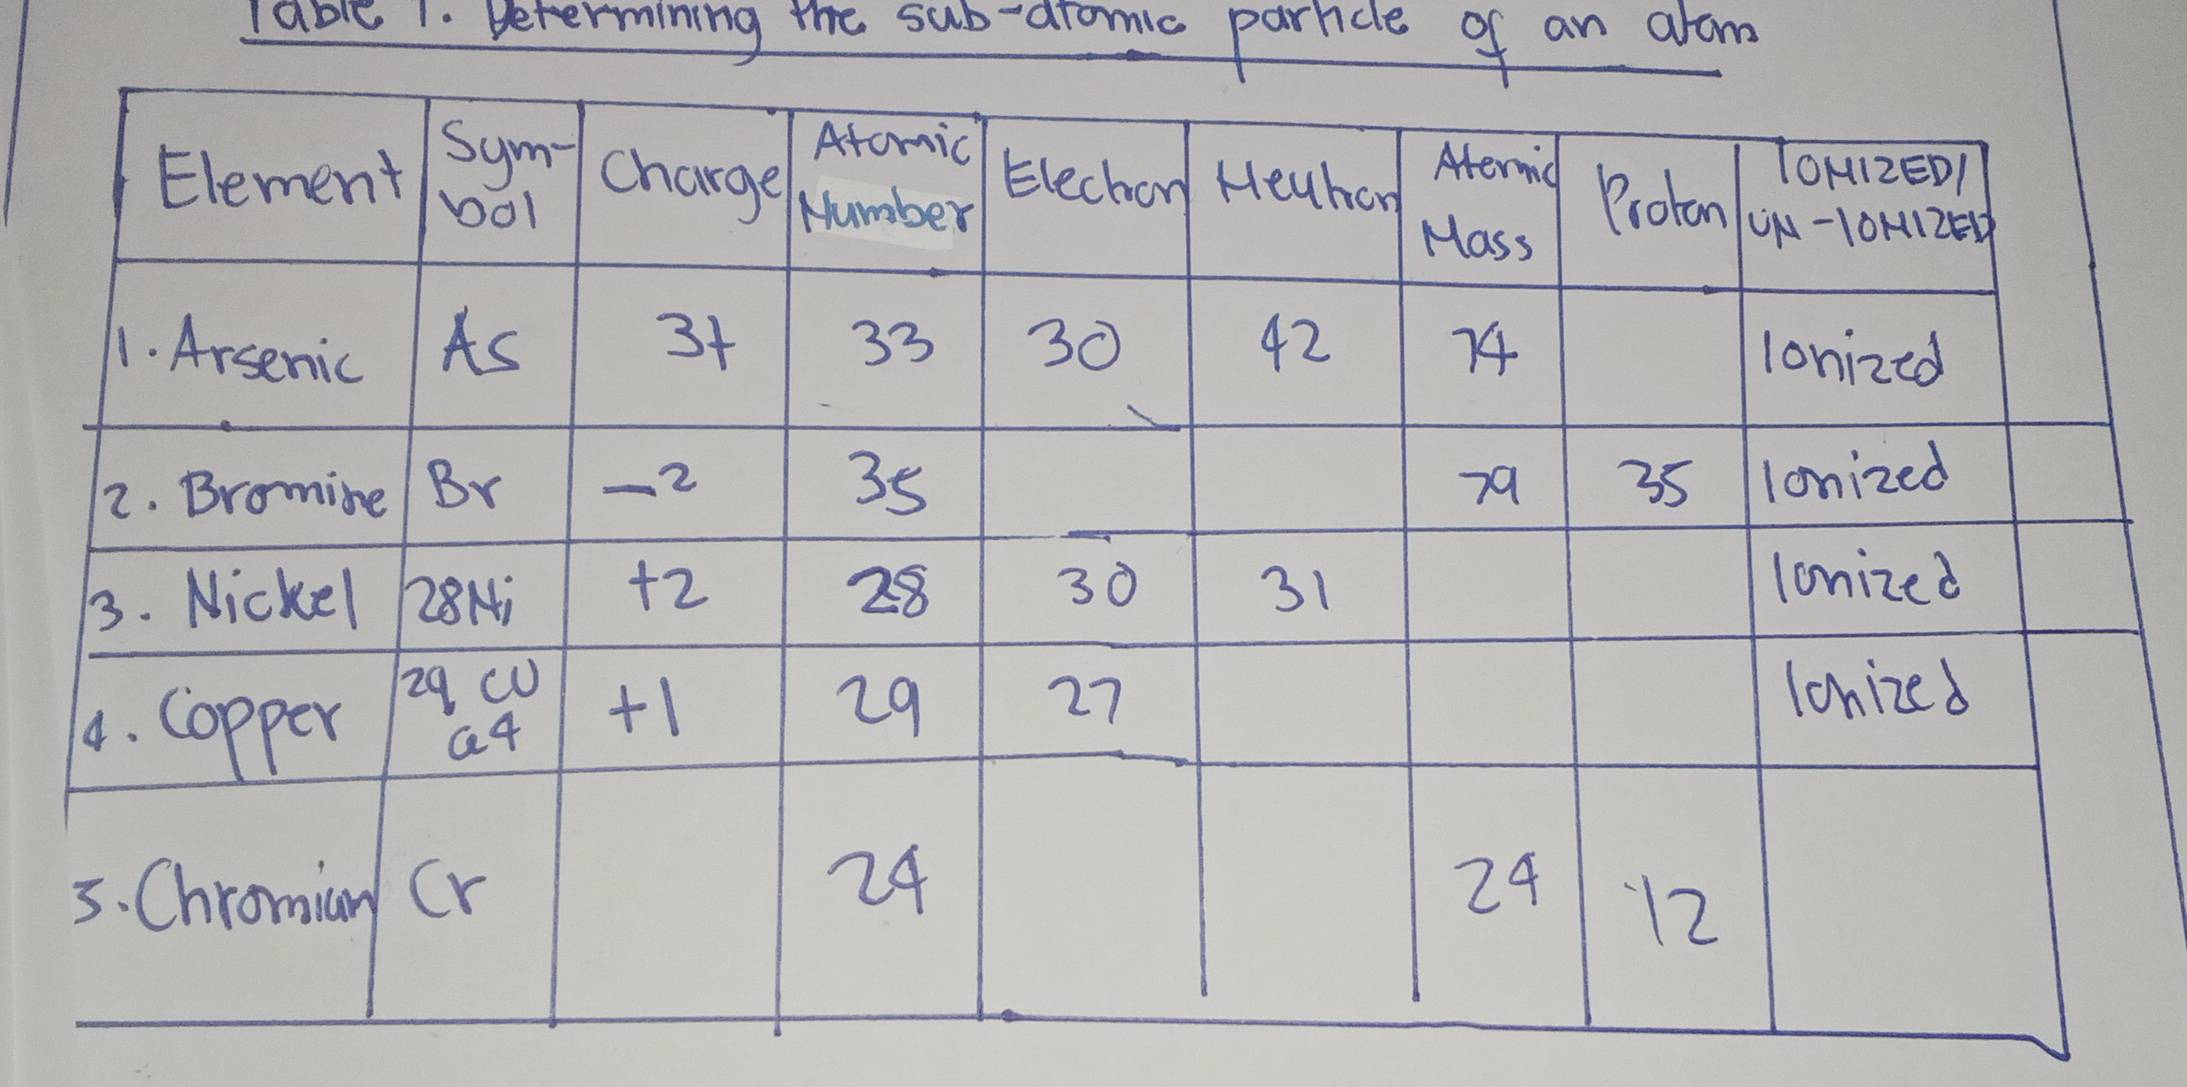 Table 1. Determining the sub-atomic particle of an atom
Element Sym-bol Charge Atomic Number Electron Neutron Atomic Mass Proton IONIZED/ UN-IONIZED
1. Arsenic As 3+ 33 30 42 74 Ionized
2. Bromine Br -2 35 79 35 Ionized
3. Nickel 28Ni +2 28 30 31 Ionized
4. Copper 29 Cu a4 +1 29 27 Ionized
5. Chromium Cr 24 24 12